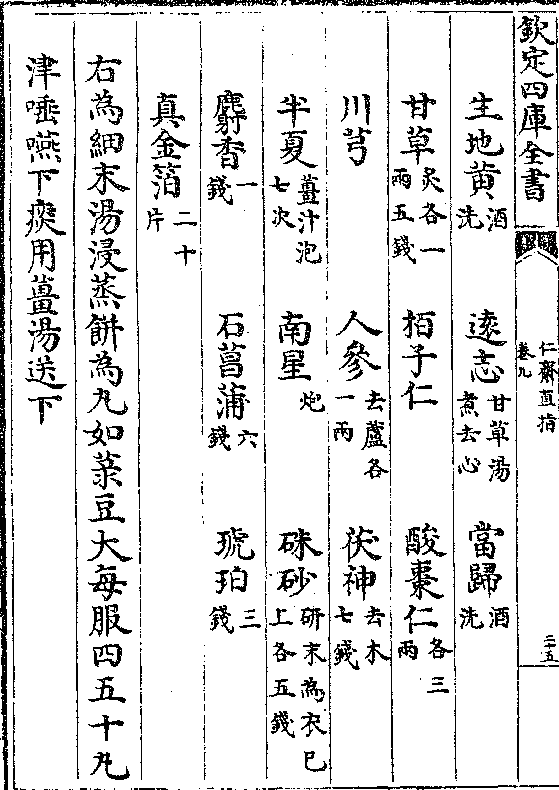 欽定四庫全書
仁齋直指
卷九
二十五
生地黄酒洗 遠志甘草湯煮去心 當歸酒洗
甘草炙各一兩五錢 栢子仁 酸棗仁各三兩
川芎 人參去蘆各一兩 茯神去木七錢
半夏薑汁泡七次 南星炮 硃砂研末為衣已上各五錢
麝香一錢 石菖蒲六錢 琥珀三錢
真金箔二十片
右為細末湯浸蒸餅為丸如菉豆大每服四五十丸
津唾嚥下痰用薑湯送下